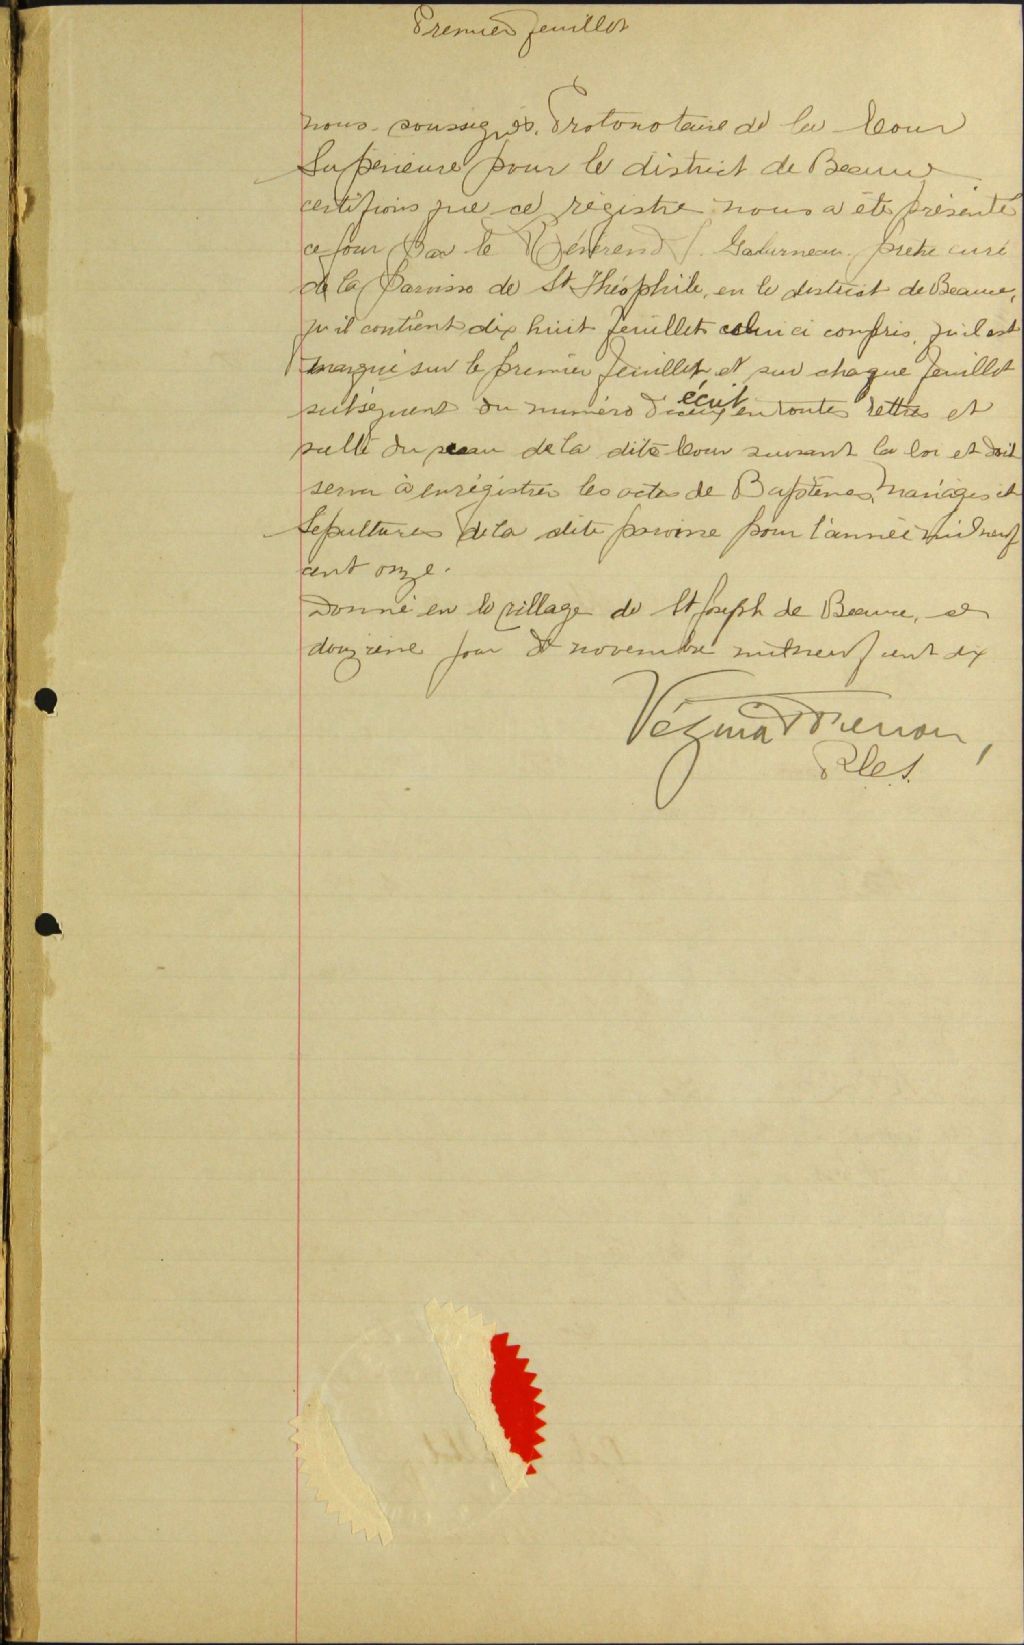 Premier feuillet
nous soussignés, Protonotaire de la Cour
Supérieure pour le district de Beauce
certifions que ce régistre nous a été présenté
ce jour par le Révérend J. Galerneau prêtre curé
de la Paroisse de St Théophile, en le district de Beauce,
qu'il contient dix huit feuillets celui ci compris, qu'il est
marqué sur le premier feuillet et sur chaque feuillet
subséquent du numéro d'iceux écrit en toutes lettres et
scellé du sceau de la dite Cour suivant la loi et doit
servir à enrégistrer les actes de Baptêmes, Mariages et
Sépultures de la dite paroisse pour l'année mil neuf
cent onze.
Donné en le village de St Joseph de Beauce, ce
douzième jour de novembre mil neuf cent dix
Vézina
P.C.S.